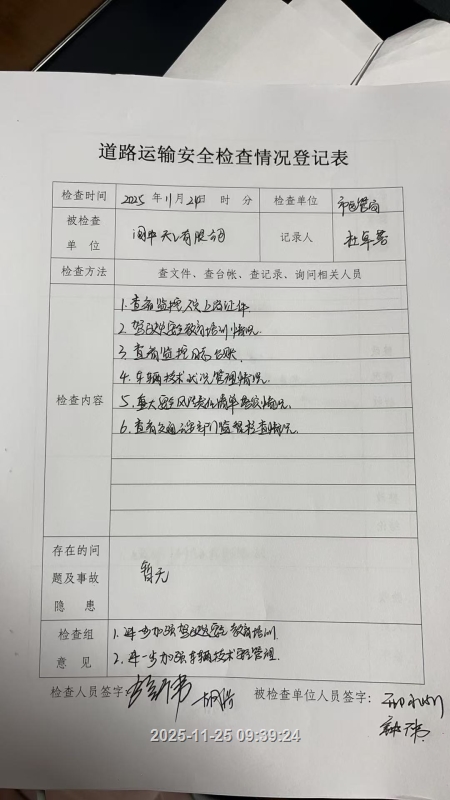 道路运输安全检查情况登记表
检查时间 2025 年 11 月 24日 时 分 检查单位 市运管局
被检查单位 有限公司 记录人
检查方法 查文件、查台帐、查记录、询问相关人员
检查内容
1. 查看监控人员上岗证件
2. 驾驶员安全教育培训情况.
3. 查看监控日志台账.
4. 车辆技术状况管理情况.
5. 重大安全风险责任清单落实情况.
6. 查看交通运输部门监督检查情况.
存在的问题及事故隐患 暂无
检查组意见
1. 进一步加强驾驶员安全教育培训.
2. 进一步加强车辆技术管理.
检查人员签字: 被检查单位人员签字:
2025-11-25 09:39:24